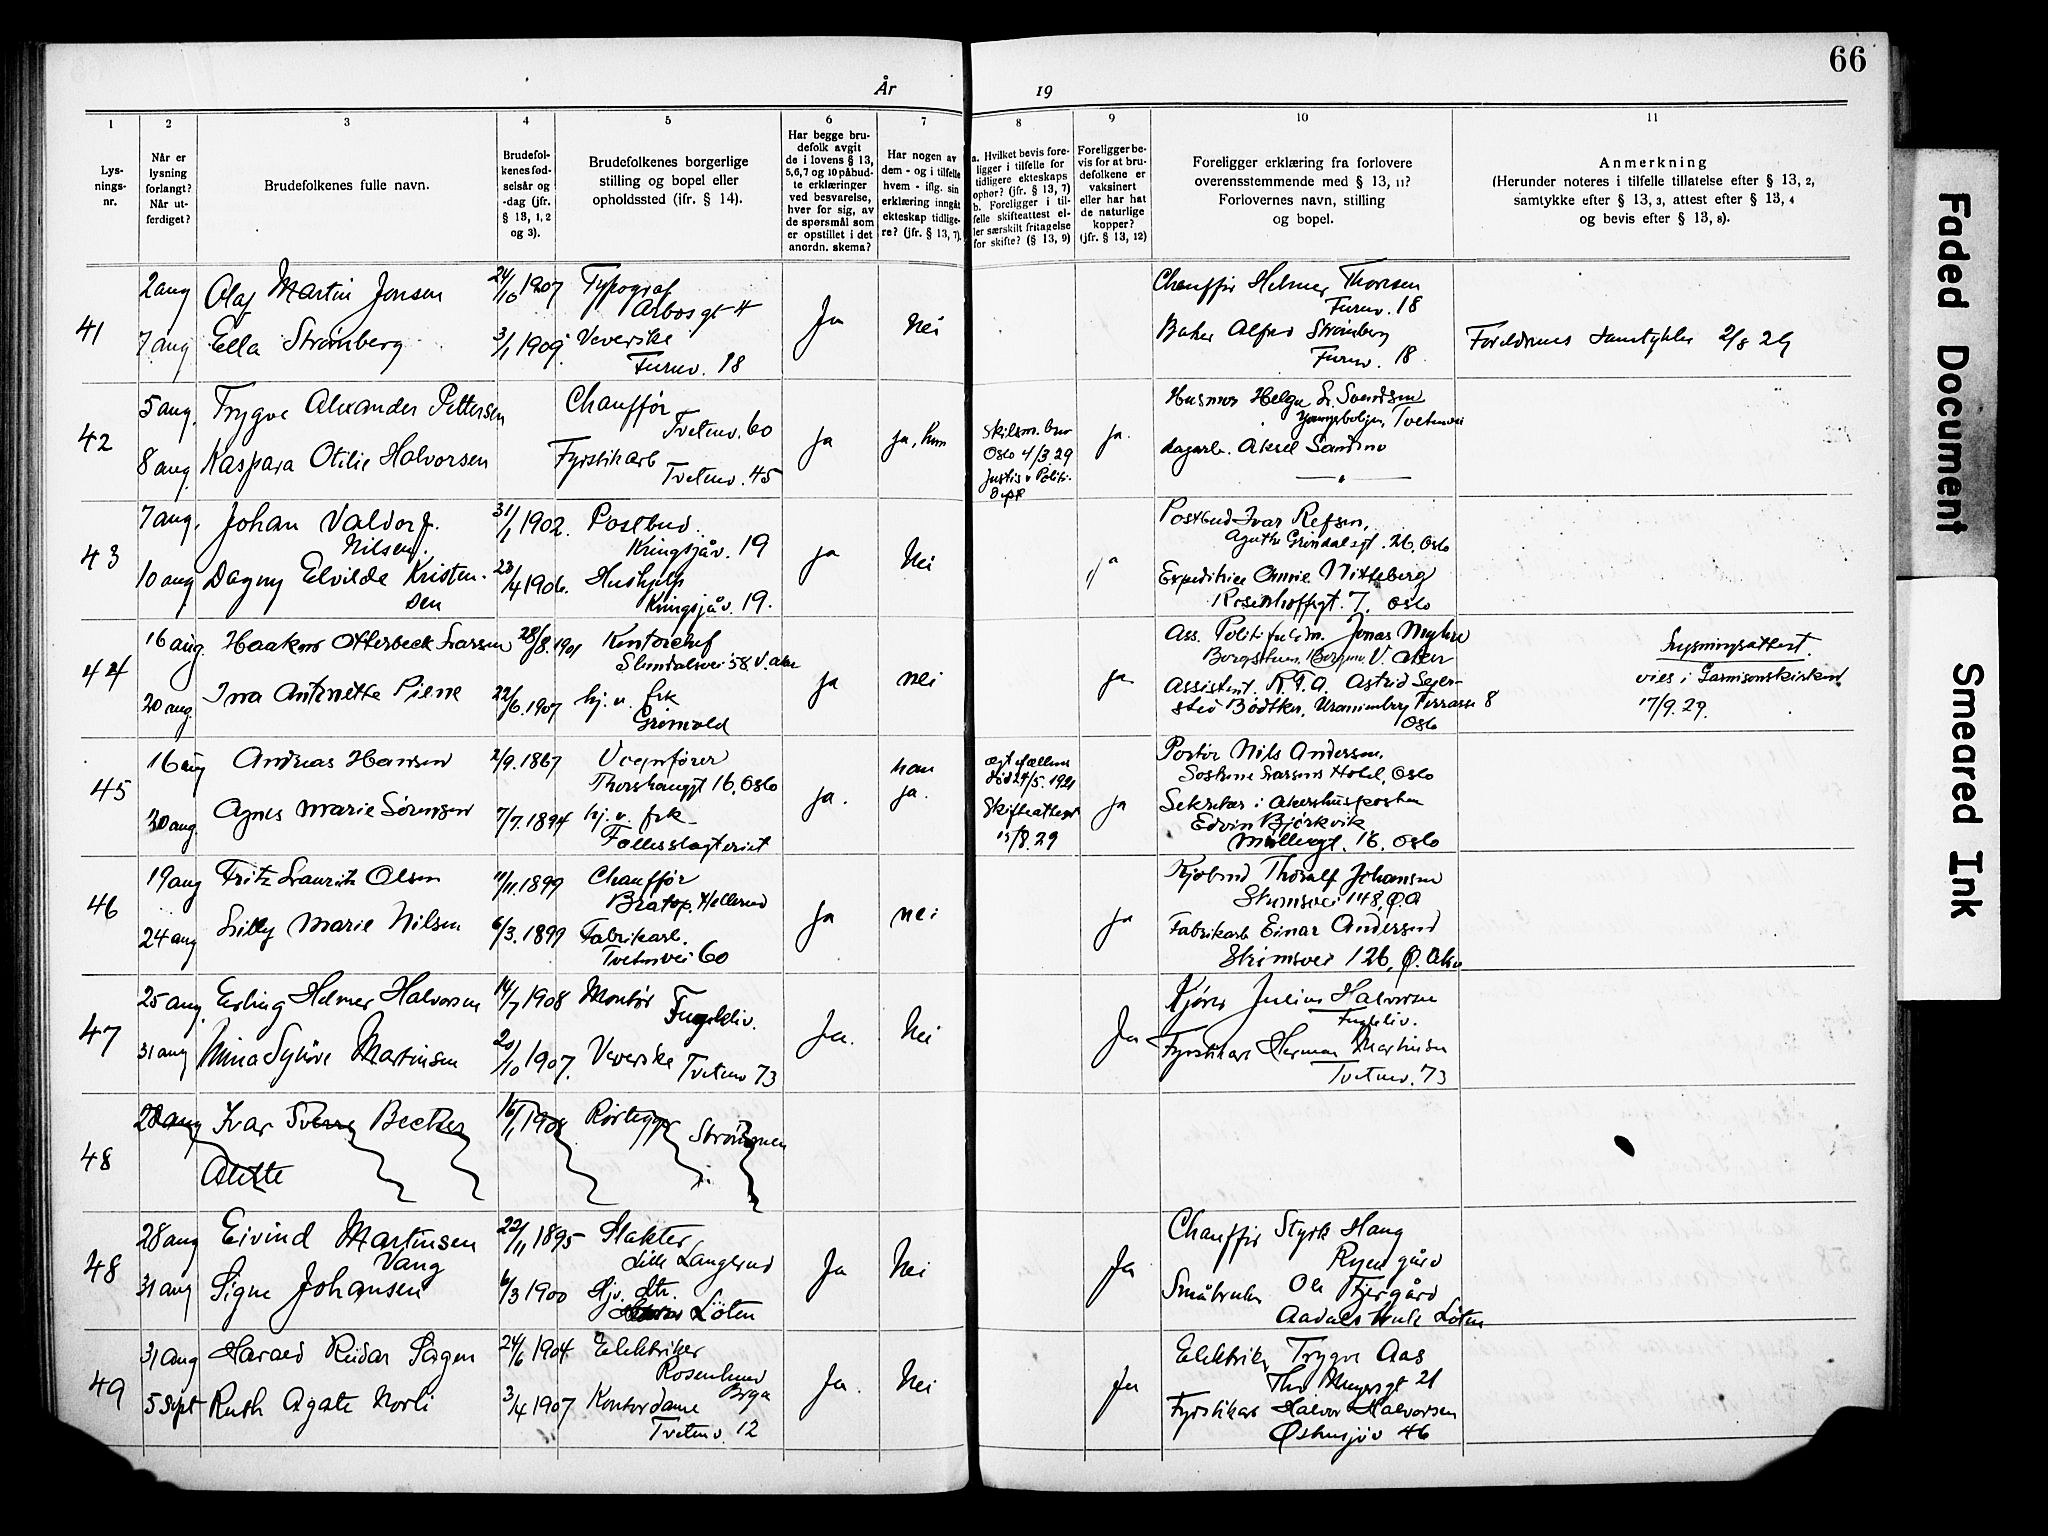 66
År 19
1 2 3 4 5 6 7 8 9 10 11
Lys-
nings-
nr.
Når er
lysning
forlangt?
Når ut-
ferdiget?
Brudefolkenes fulle navn.
Brudefol-
kenes fød-
selsår og
-dag (jfr.
§ 13, 1, 2
og 3).
Brudefolkenes borgerlige
stilling og bopel eller
opholdssted (jfr. § 14).
Har begge bru-
defolk avgit
de i lovens § 13,
5,6,7 og 10 påbud-
te erklæringer
ved besvarelse,
hver for sig, av
de spørsmål som
er opstillet i det
anordn. skema?
Har nogen av
dem - og i tilfelle
hvem - iflg. sin
erklæring inngåt
ekteskap tidlige-
re? (jfr. § 13, 7).
a. Hvilket bevis fore-
ligger i tilfelle for
tidligere ekteskaps
ophør? (jfr. § 13, 7)
b. Foreligger i til-
felle skifteattest el-
ler særskilt fritagelse
for skifte? (§ 13, 9)
Foreligger be-
vis for at bru-
defolkene er
vaksinert
eller har hat
de naturlige
kopper?
(jfr. § 13, 12)
Foreligger erklæring fra forlovere
overensstemmende med § 13, 11?
Forlovernes navn, stilling
og bopel.
Anmerkning
(Herunder noteres i tilfelle tillatelse efter § 13, 2,
samtykke efter § 13, 3, attest efter § 13, 4
og bevis efter § 13, 8).
41
2 aug Olaf Martin Jensen 24/10 1907 Typograf
Arbosgt 4
7 aug Ella Strømberg 3/1 1909 Veverske
Furuv. 18
Ja Nei
Chauffør Helmer Thoresen
Furuv. 18
Baker Alfred Strømberg
Furuv. 18
Foreldrenes samtykke 2/8 29
42
5 aug. Trygve Alexander Pettersen Chauffør
Tvetenv. 60
8 aug Kaspara Otilie Halvorsen Fyrstikarb
Tvetenv. 45
Ja ja, hun
Skilsm. bev
Oslo 4/3 29
Justis & Politi-
dept
ja.
Helge Svendsen
Tvetenvei
Aksel
43
7 aug. Johan Valdorf. 31/1 1902. Postbud.
Nilsen. Kringsjåv. 19
10 aug Dagny Elvilde Kristen- 23/4 1906. Hushjelp
sen Kringsjåv. 19.
ja Nei ja
Postbud Ivar Refsen,
Agathe Grøndalsgt. 26, Oslo
Expeditrice Annie Nitteberg
Rosenhoffgt. 7, Oslo
44
16 aug. Haakon Otterbeck Larsen 28/8. 1901 Kontorchef
Slemdalsvei 58 V. Aker
20 aug. Ina Antonette Piene 22/6. 1907 hj. v. frk
Grimvold
ja nei ja
Ass. Jonas Myhre
V. Aker
Assistent. R.T.A. Astrid Sejer-
sted Bødtker, Uranienborg Terrasse 8
Oslo
Lysningsattest.
vies i Garnisonskirken
17/9. 29.
45
16 aug Andreas Hansen 2/9. 1867 Vognfører
Thorshauggt 16, Oslo
30 aug. Agnes Marie Sørensen 7/7. 1894 hj. v. frk
Fellesslagteriet
ja. han
ja.
død 24/5. 1921
Skifteattest
15/8. 29
ja
Portør Nils Andersen.
Larsens Hotel, Oslo
Sekretær i Akershusposten
Edvin Bjørkvik
Møllergt. 16, Oslo
46
19 aug Fritz Lauritz Olsen 11/11. 1899 Chauffør
Hellerud
24 aug Lilly Marie Nilsen 6/3. 1899 Fabrikarb.
Tvetenvei 60
ja nei ja
Thoralf Johansen
148, Ø. A
Fabrikarb Einar Andersen
126, Ø. Aker
47
25 aug. Erling Helmer Halvorsen 14/7 1908 Montør
Fugleliv.
31 aug Mina Sylvie Martinsen 20/10 1907. Veverske
Tvetenv 73
Ja. Nei Ja
Kjører Julius Halvorsen
Fugleliv.
Fyrstikarb Herman Martinsen
Tvetenv. 73
48
28 aug Ivar Sverre Becker 16/1 1908 Rørlegger
Strømmen
48
28 aug Eivind Martinsen 22/11 1895 Slakter
Vang Lille Langerud
31 aug Signe Johansen 6/3 1900 Hjv. dtr.
Löten
Ja Nei Ja
Chauffør Styrk Haug
Ryen gård
Småbruker Ole
Löten
49
31 aug Harald Reidar Sagen 24/6 1904 Elektriker
Rosenlund
Bryn
5 Sept Ruth Agate Norli 3/4 1907 Kontordame
Tvetenv. 12
Ja. Nei Ja
Elektriker Trygve Aas
Ths Meyersgt 21
Fyrstikarb Halvor Halvorsen
Østensjøv 46
Faded Document
Smeared Ink